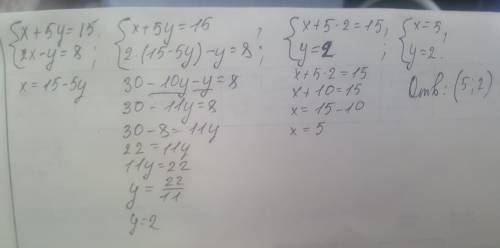 {x+5y=15,
{2x-y=8;
x=15-5y
{x+5y=15,
{2·(15-5y)-y=8;
30-10y-y=8
30-11y=8
30-8=11y
22=11y
11y=22
y=22/11
y=2
{x+5·2=15,
{y=2;
x+5·2=15
x+10=15
x=15-10
x=5
{x=5,
{y=2.
Отв: (5;2)